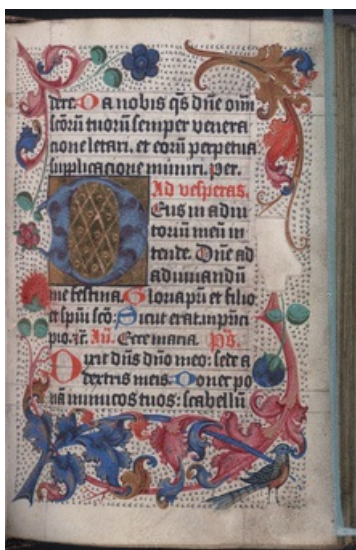 dere. Da nobis qs dne om̄
scōrū tuorū semper venera
cione letari. et eorū perpetua
supplicacione muniri. Per.
Ad vesperas.
Deus in adiu
toriū meū in
tende. Dn̄e ad
adiuuandū
me festina. Gloria pri et filio:
et spiri scō. Sicut erat in prici
pio. Ecce maria. Ps.
Dixit dn̄s dn̄o meo: sede a
dextris meis. Donec po
nā inimicos tuos: scabellū